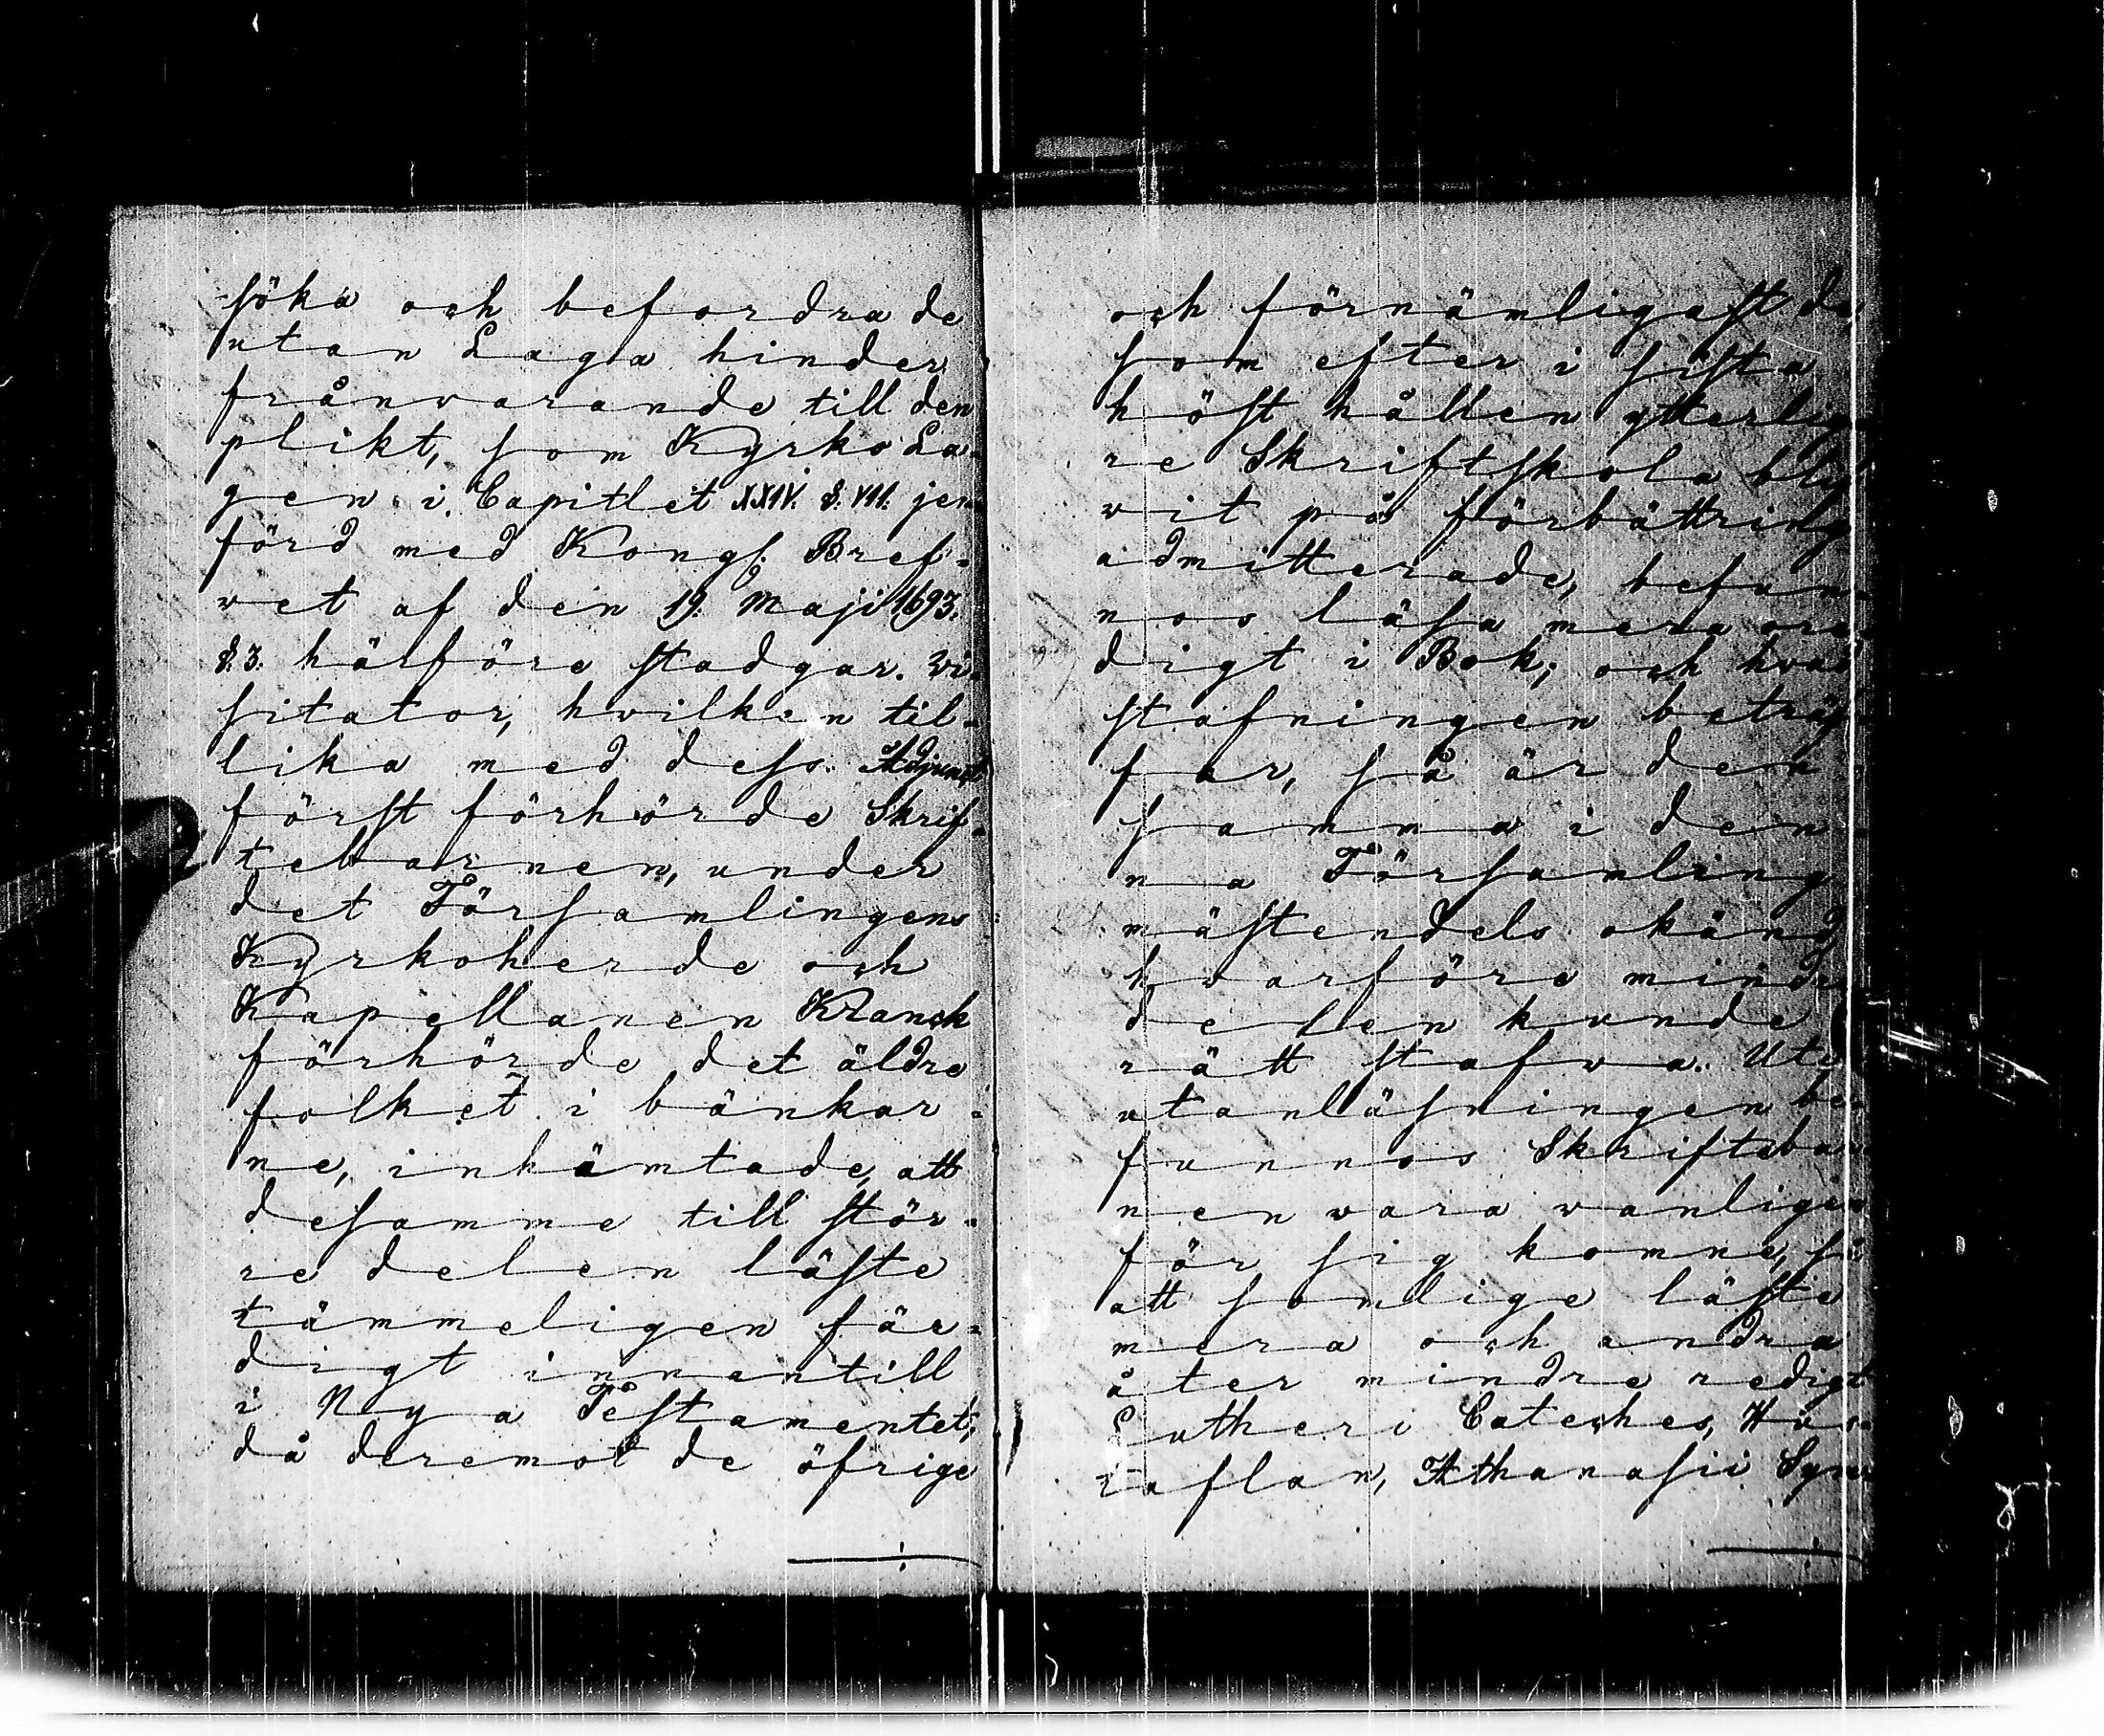 söka och befordra de
utan Laga hinder
frånvarande till den
plikt, som Kyrko La-
gen i Capitlet XXIV. §. VII. jem
förd med Kongl. Bref-
vet af den 19. Maji 1693.
§. 3. härföre stadgar. Vi-
sitator, hvilken til-
lika med dess Adjunct
först förhörde Skrif-
tebarnen, under
det Församlingens
Kyrkoherde och
Kapellanen Kranck
förhörde det äldre
folket i bänkar-
ne, inhämtade, att
desamme till stör-
re delen läste
tämmeligen fär-
digt innantill
i Nya Testamentet;
då deremot de öfrige
och förnämligast de,
som efter i sista
höst hållen ytterliga
re Skriftskola bli
vit på förbättring
admitterade, befun-
nos läsa mera ore-
digt i Bok; och hvad
stafningen beträf
far, så är den
samma i den-
na Församling
mästendels okänd
hvarföre mindre
delen kunde
rätt stafva. Uti
utanläsningen be-
funnos Skriftebar
nen vara vanligen
för sig komne, så
att somlige läste
mera och andra
åter mindre redigt
Lutheri Cateches, Hus-
taflan, Athanasii Sym